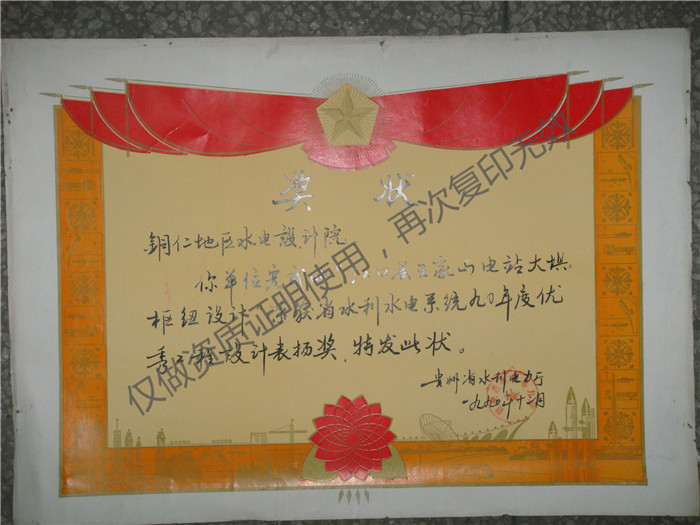 奖状
銅仁地区水电設计院
你单位完 县 山电站大坝
枢纽设计 获省水利水电系统九〇年度优
秀工程設计表扬奖，特发此状。
贵州省水利电力厅
一九九〇年十二月
仅做资质证明使用，再次复印无效